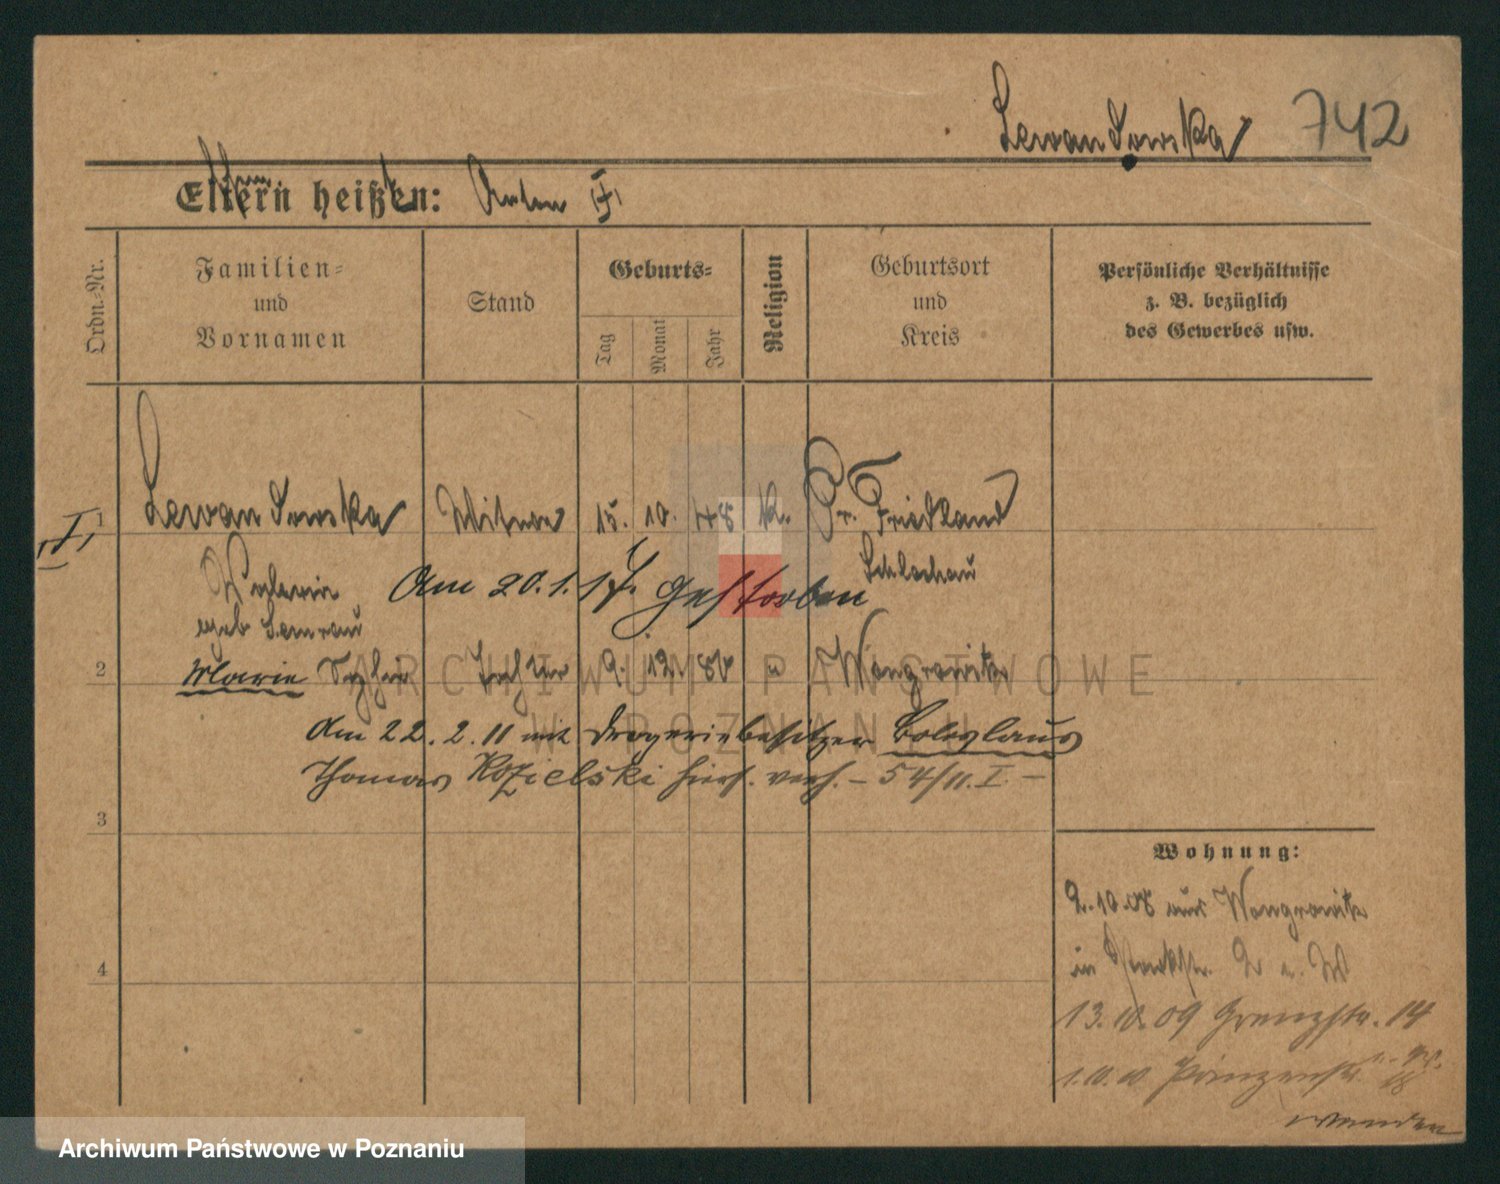 Lewandowska 742
Eltern heißen: Anton
Ordn.-Nr.
Familien-
und
Vornamen
Stand
Geburts-
Tag
Monat
Jahr
Religion
Geburtsort
und
Kreis
Persönliche Verhältnisse
z. B. bezüglich
des Gewerbes usw.
1 Lewandowska Witwe 15. 10. 48 K. Pr. Friedland
Schlochau
Valeria Am 20.1.17. gestorben
geb Semrau
2 Marie Tochter 9. 12. Wongrowitz
Am 22.2.11 mit Drogeriebesitzer Boleslaus
Thomas Kozielski hies. verh. – 54/11. I. –
3
Wohnung:
2.10.08 aus Wongrowitz
in
4
13.10.09 Grenzstr. 14
Prinzenstr.
wenden
ARCHIWUM PAŃSTWOWE
W POZNANIU
Archiwum Państwowe w Poznaniu